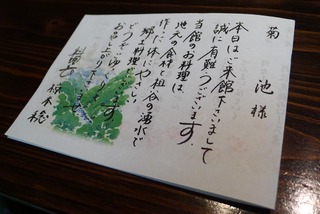 菊池様
本日はご来館下さいまして
誠に有難うございます。
当館のお料理は、
地元の食材と祖谷の湧水で
作た体にやさしい
郷土料理でございます
どうぞごゆっくり
お召し上がり下さい
料理長